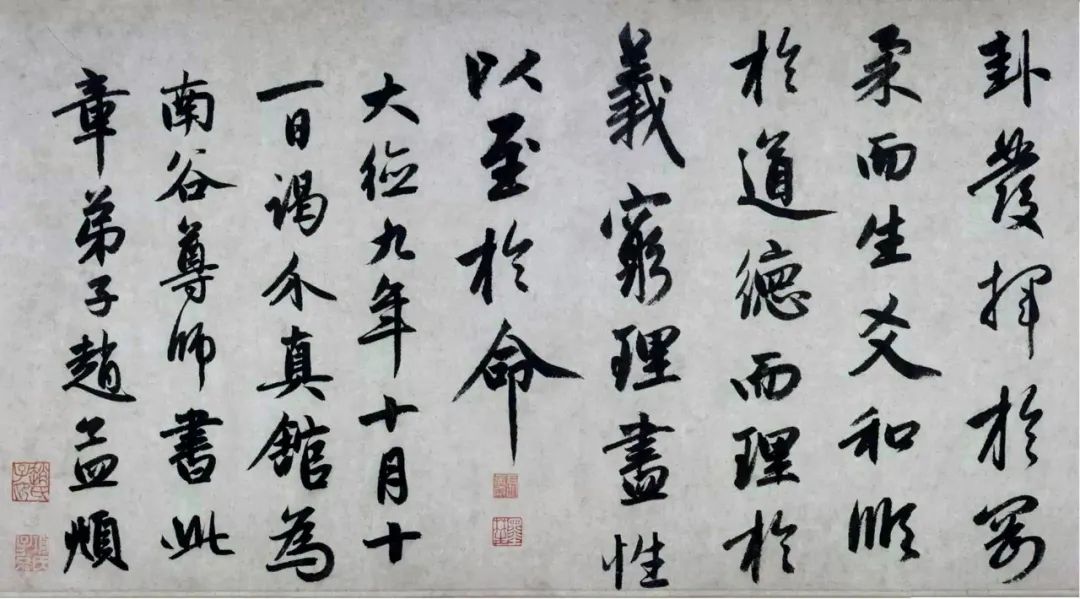 卦發揮於剛
柔而生爻和順
於道德而理於
義窮理盡性
以至於命
大德九年十月十
一日謁介真館為
南谷尊師書此
章弟子趙孟頫
趙氏子昂